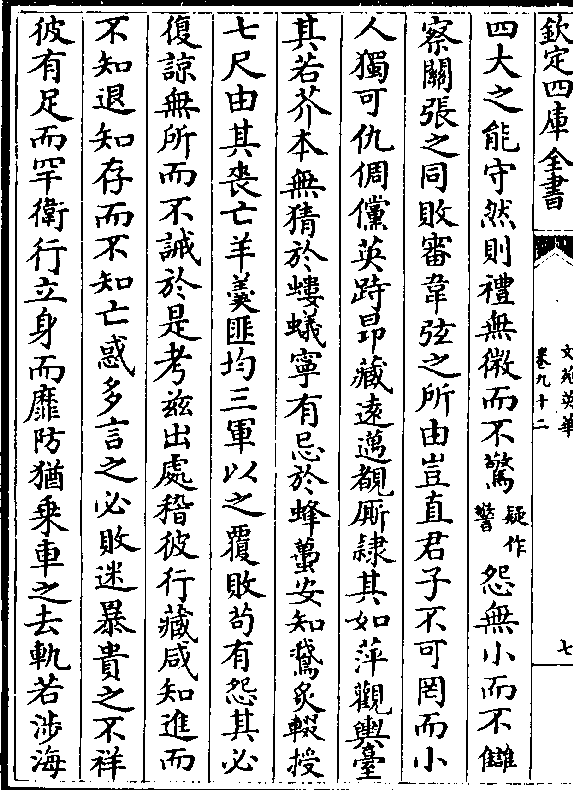 欽定四庫全書
文苑英華
卷九十二
七
四大之能守然則禮無微而不驚疑作警怨無小而不讎
察關張之同敗審韋弦之所由豈直君子不可罔而小
人獨可仇倜儻英跱昂藏遠邁覩厮隸其如萍觀輿臺
其若芥本無猜於螻蟻寧有忌於蜂蠆安知鵞炙輟授
七尺由其喪亡羊羮匪均三軍以之覆敗苟有怨其必
復諒無所而不誡於是考兹出處稽彼行藏咸知進而
不知退知存而不知亡惑多言之必敗迷暴貴之不祥
彼有足而罕衛行立身而靡防猶乗車之去軌若涉海